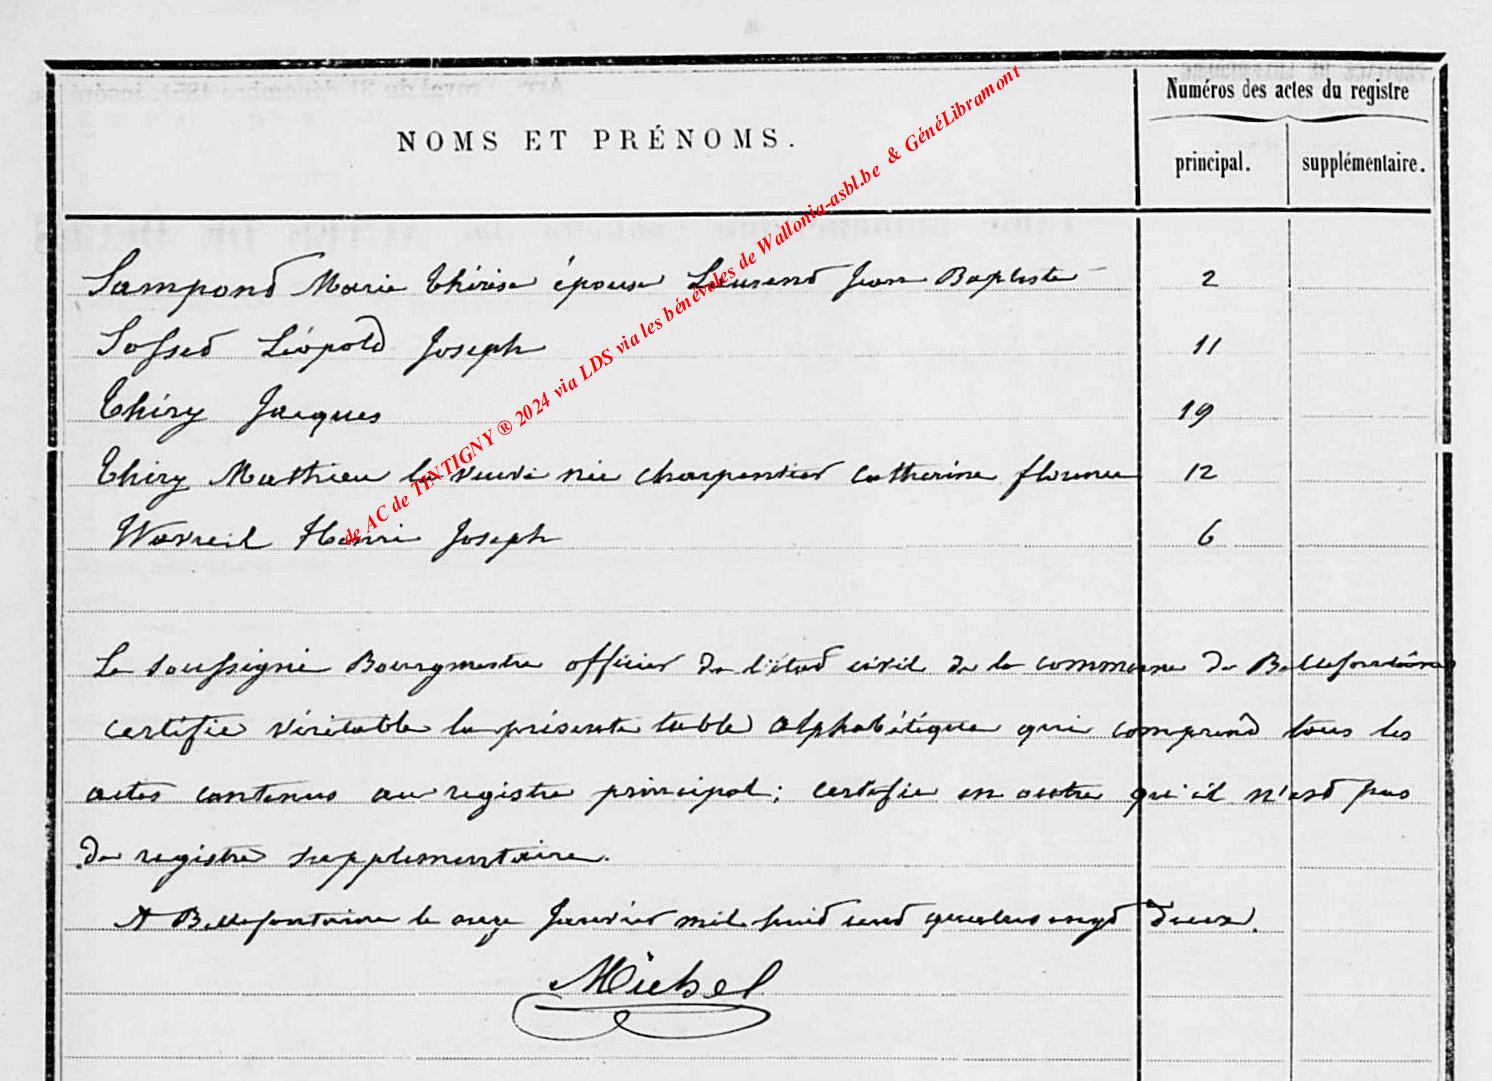 Numéros des actes du registre
NOMS ET PRÉNOMS.
principal. supplémentaire.
Sampond Marie Thérèse épouse Laurend Jean Baptiste 2
Sosset Léopold Joseph 11
Thiry Jacques 19
Thiry Mathieu la veuve née Charpentier Catherine florence 12
Wavreil Henri Joseph 6
Le soussigné Bourgmestre officier de l'état civil de la commune de Bellefontaine
certifie véritable la présente table alphabétique qui comprend tous les
actes contenus au registre principal; certifie en outre qu'il n'est pas
de registre supplémentaire.
A Bellefontaine le onze Janvier mil huit cent quatre vingt deux.
Michel
de AC de TINTIGNY ® 2024 via LDS via les bénévoles de Wallonia-asbl.be & GénéLibramont